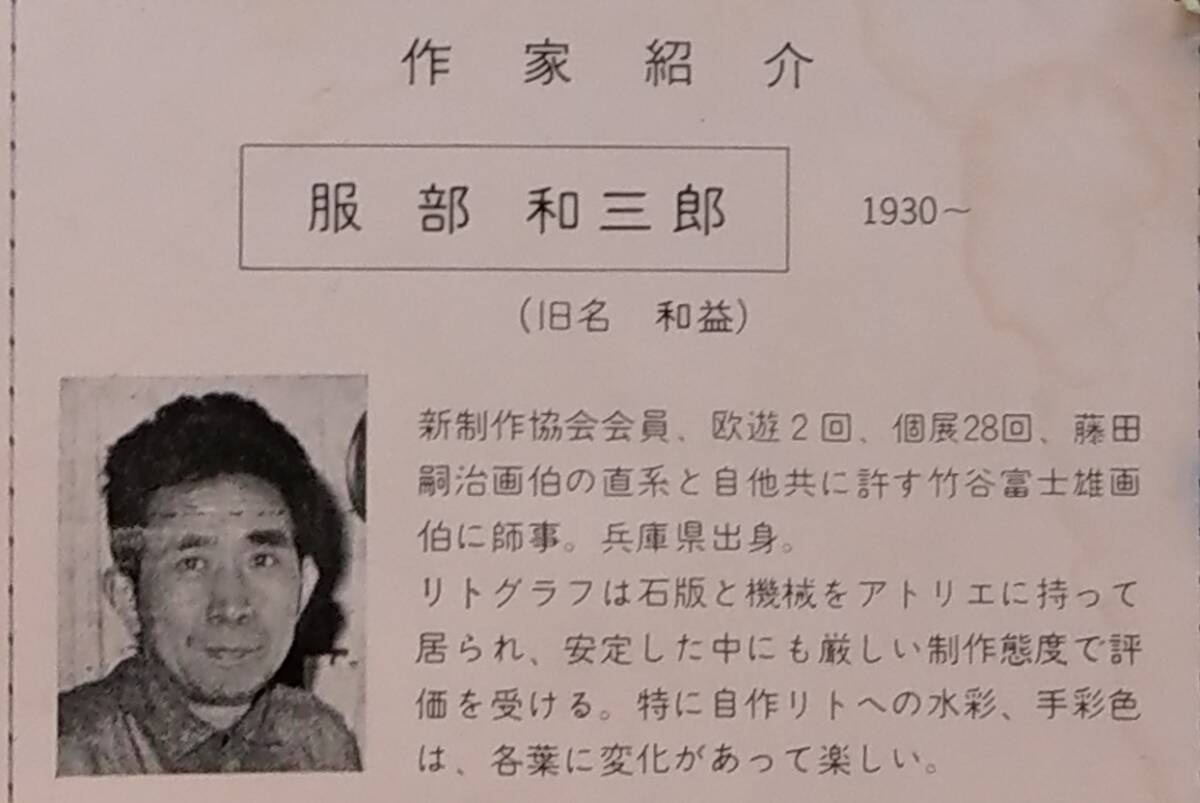 作家紹介
服部 和三郎 1930～
(旧名 和益)
新制作協会会員、欧遊2回、個展28回、藤田
嗣治画伯の直系と自他共に許す竹谷富士雄画
伯に師事。兵庫県出身。
リトグラフは石版と機械をアトリエに持って
居られ、安定した中にも厳しい制作態度で評
価を受ける。特に自作リトへの水彩、手彩色
は、各葉に変化があって楽しい。